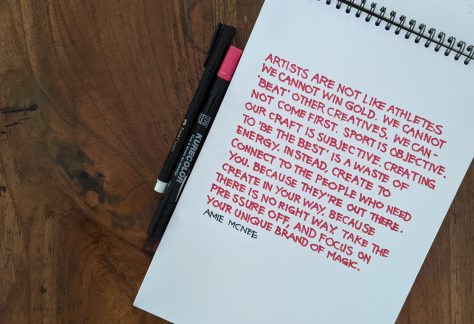 ARTISTS ARE NOT LIKE ATHLETES.
WE CANNOT WIN GOLD. WE CANNOT
'BEAT' OTHER CREATIVES. WE CAN-
NOT COME FIRST. SPORT IS OBJECTIVE.
OUR CRAFT IS SUBJECTIVE. CREATING
TO 'BE THE BEST' IS A WASTE OF
ENERGY. INSTEAD, CREATE TO
CONNECT TO THE PEOPLE WHO NEED
YOU. BECAUSE THEY'RE OUT THERE.
CREATE IN YOUR WAY, BECAUSE
THERE IS NO RIGHT WAY. TAKE THE
PRESSURE OFF, AND FOCUS ON
YOUR UNIQUE BRAND OF MAGIC.
AMIE MCNEE
KURECOLOR